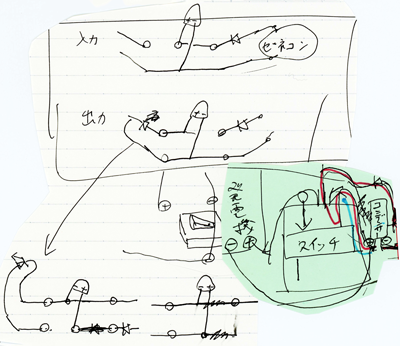 入力
ゼネコン
出力
発電機
コンデンサ
⊖ ⊕
スイッチ